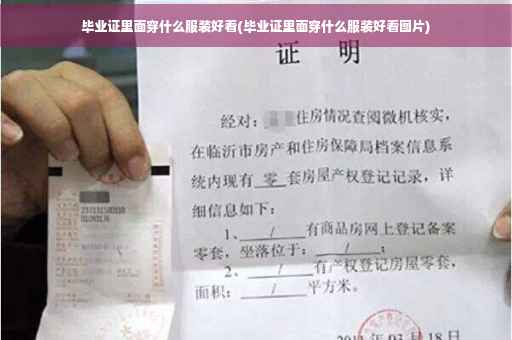 毕业证里面穿什么服装好看(毕业证里面穿什么服装好看图片)
证 明
经对：住房情况查阅微机核实，
在临沂市房产和住房保障局档案信息系
统内现有 零 套房屋产权登记记录，详
细信息如下：
1、 / 有商品房网上登记备案
零套，坐落位于： / ；
2、 / 有产权登记房屋零套，
面积： / 平方米。
03月18日